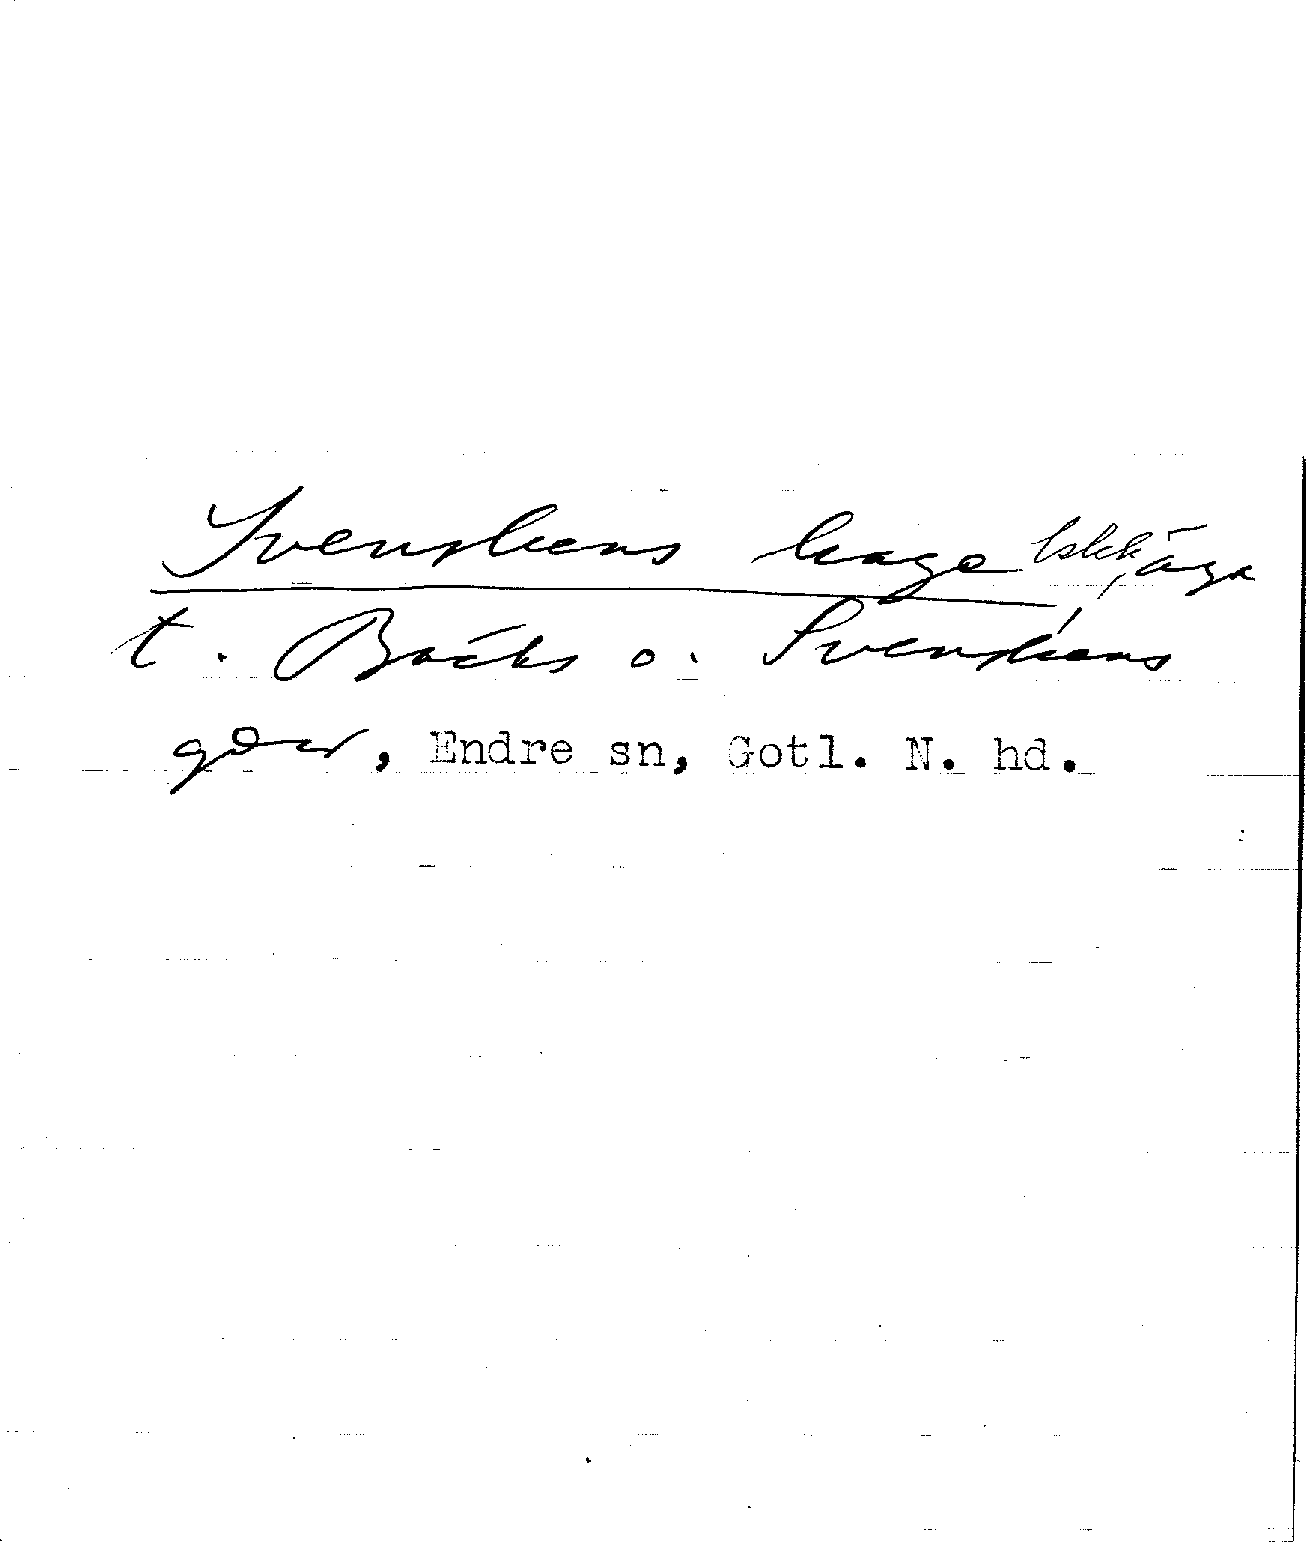 Svenskens hage bskk, äga
t. Bäcks o. Svenskens
gdar, Endre sn, Gotl. N. hd.